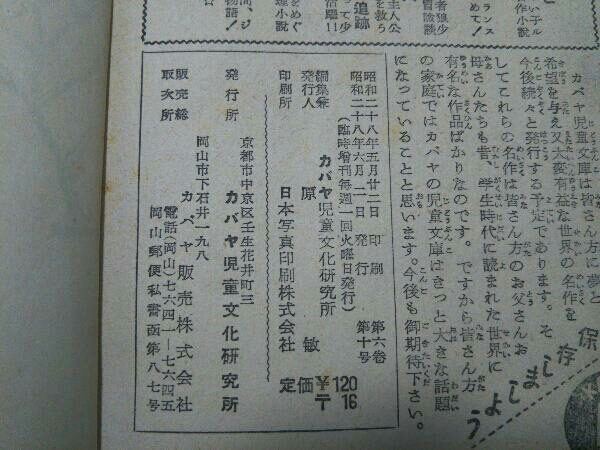 主人公
を救う
追跡
って少
活躍!!
者狼少
冒険談
ランス
めて!
作小説
カバヤ児童文庫は皆さん方に夢と
希望を与え又大変有益な世界の名作を
今後続々と発行する予定であります。そ
してこれらの名作は皆さん方のお父さんお
母さんたちも昔、学生時代に読まれた世界に
有名な作品ばかりなのです。ですから皆さん方
の家庭ではカバヤの児童文庫はきっと大きな話題
になっていることと思います。今後も御期待下さい。
保存しましょう
昭和二十八年五月廿二日 印刷
昭和二十八年六月二日 発行
第六巻 第十号
(臨時増刊毎週一回火曜日発行)
編集兼発行人 カバヤ児童文化研究所 原 敏
印刷所 日本写真印刷株式会社
定価 ¥120 〒16
発行所 京都市中京区壬生花井町三 カバヤ児童文化研究所
販売総取次所 岡山市下石井一九八 カバヤ販売株式会社
電話(岡山)七六四一―七六四五
岡山郵便私書函第八七号